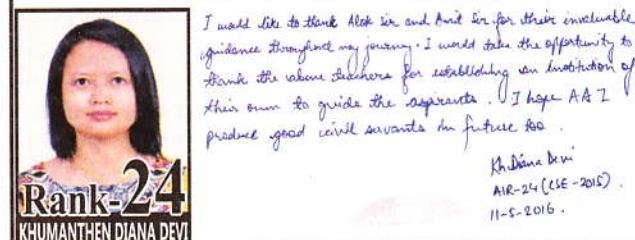 I would like to thank Alok Sir and Amit Sir for their invaluable
guidance throughout my journey. I would take the opportunity to
thank the above teachers for establishing an institution of
their own to guide the aspirants. I hope AAI
produce good civil servants in future too.
Kh. Diana Devi
AIR-24 (CSE-2015).
11-5-2016.
Rank-24
KHUMANTHEN DIANA DEVI